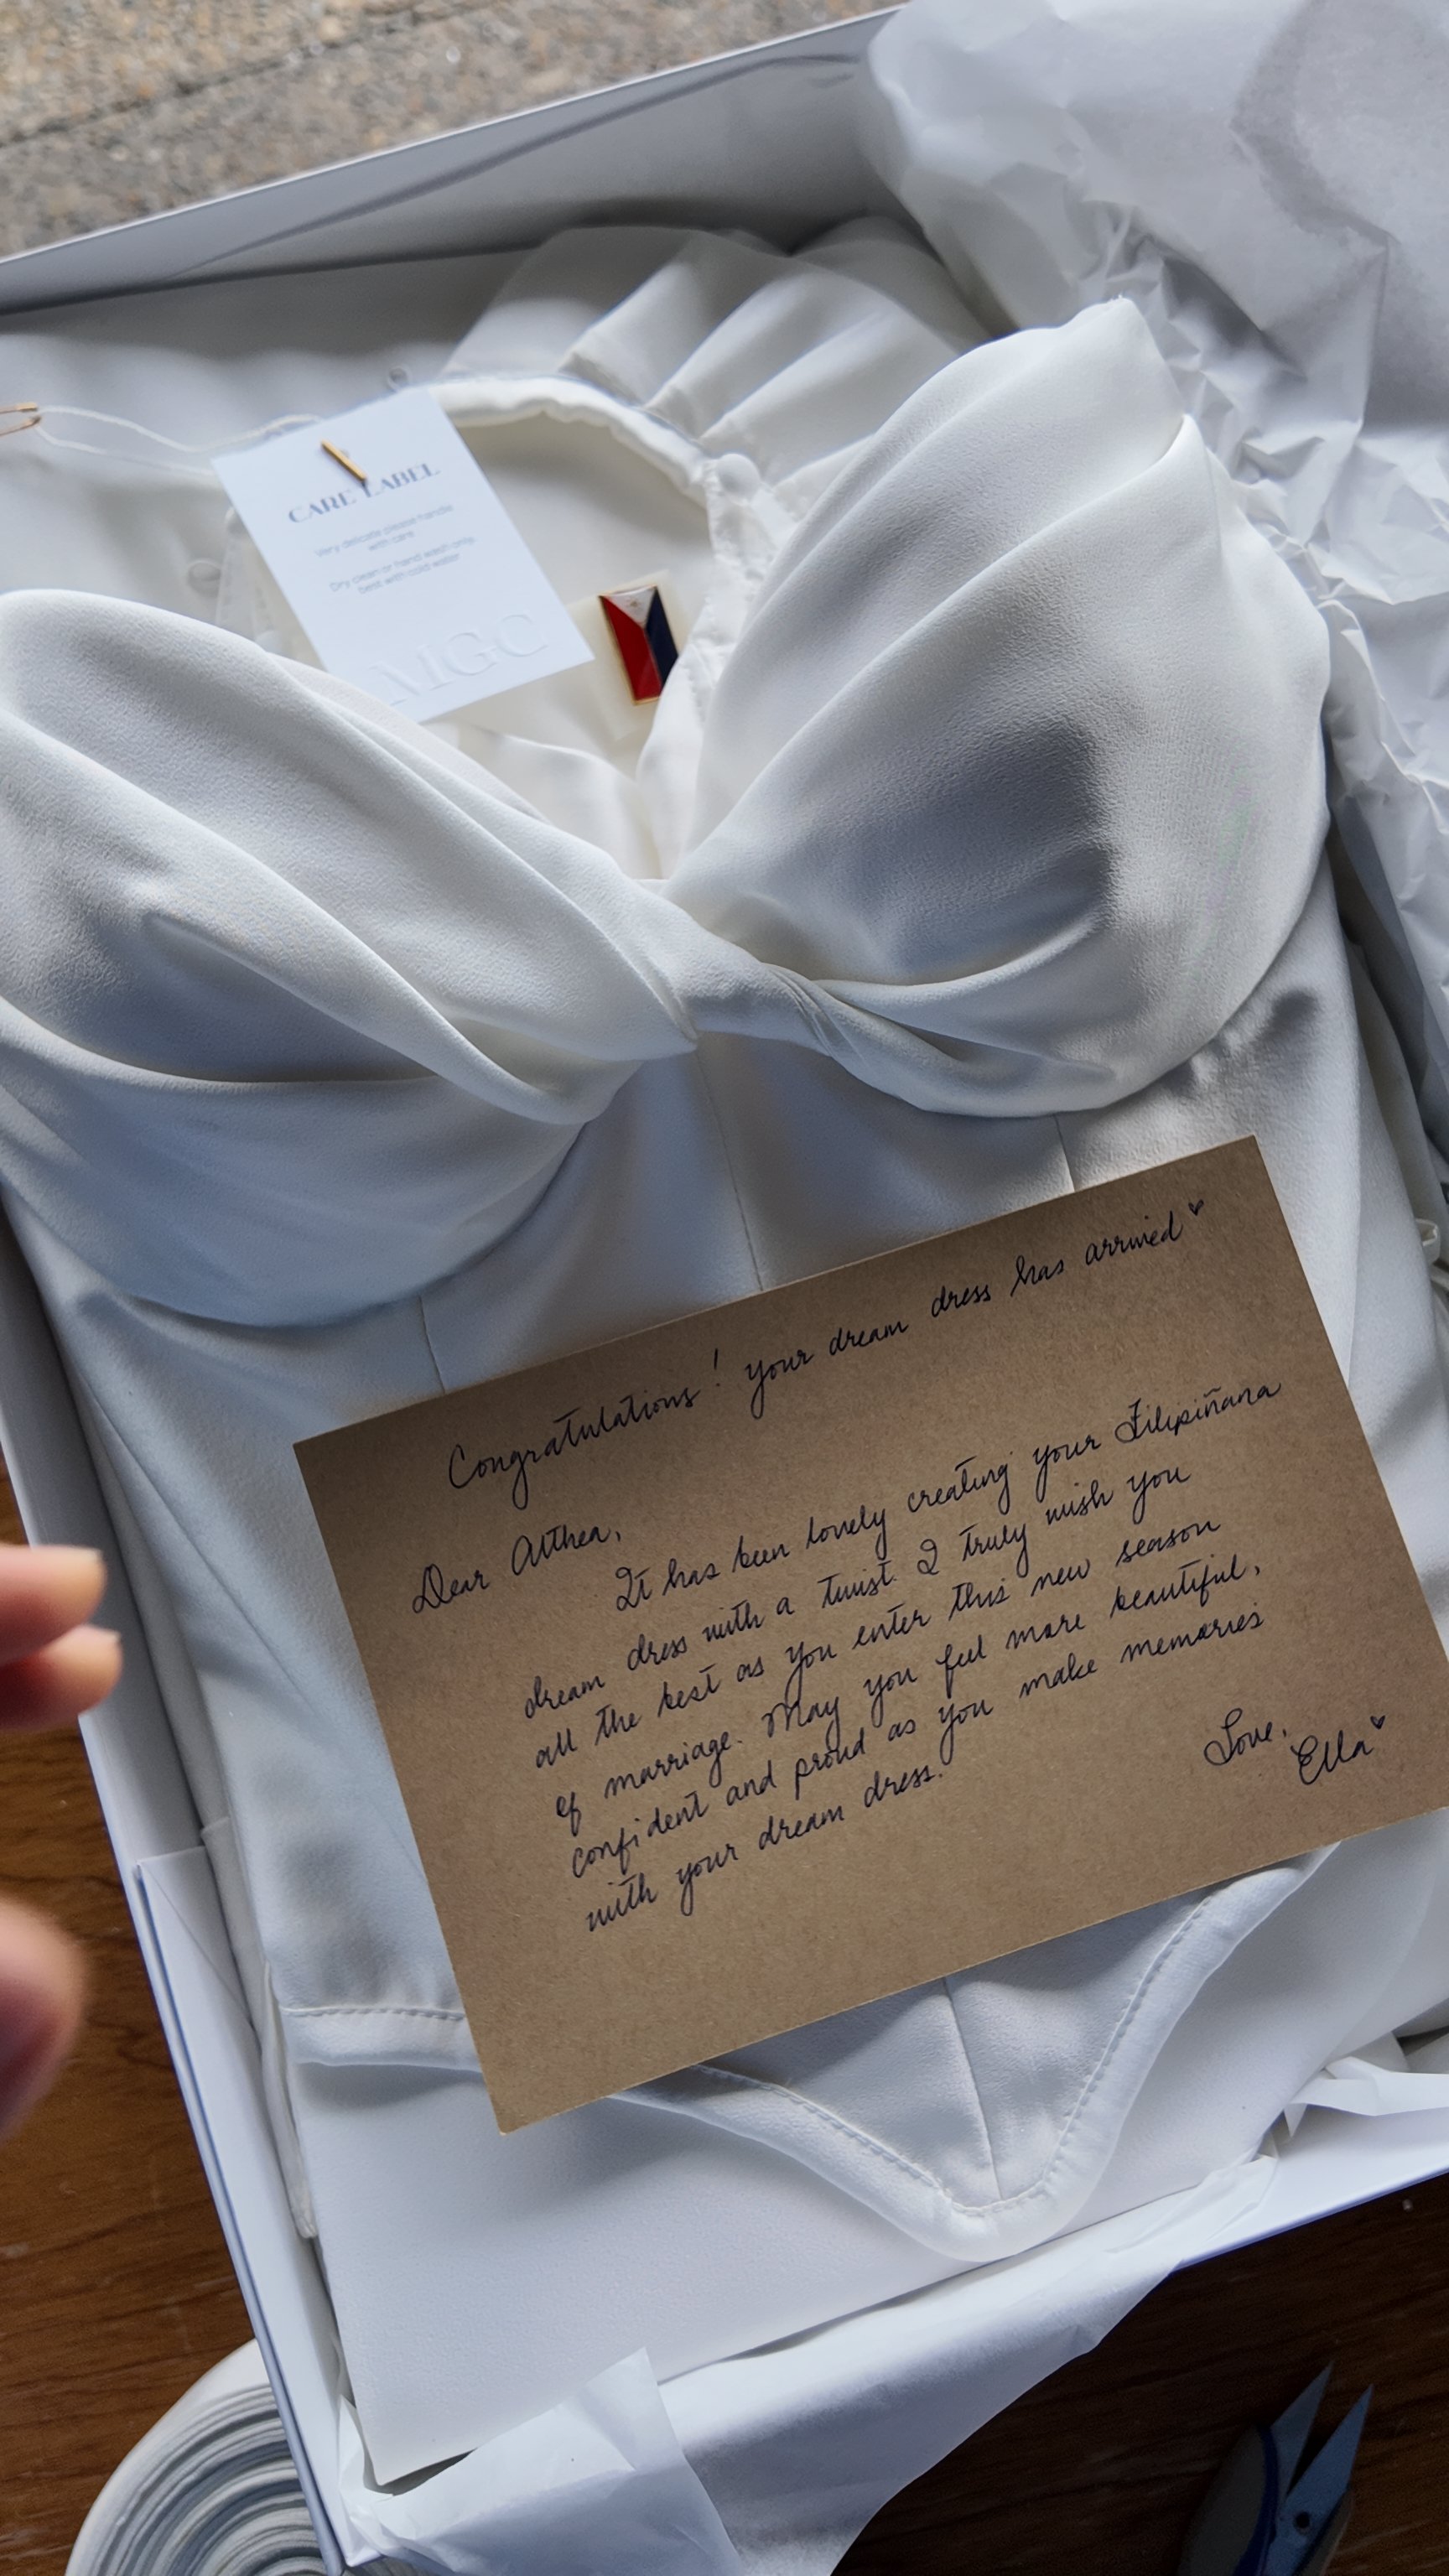 CARE LABEL
Very delicate please handle
with care
Dry clean or hand wash only,
best with cold water
MGC
Congratulations! your dream dress has arrived
Dear Althea,
It has been lovely creating your Filipiñana
dream dress with a twist. I truly wish you
all the best as you enter this new season
of marriage. May you feel more beautiful,
confident and proud as you make memories
with your dream dress.
Love,
Ella